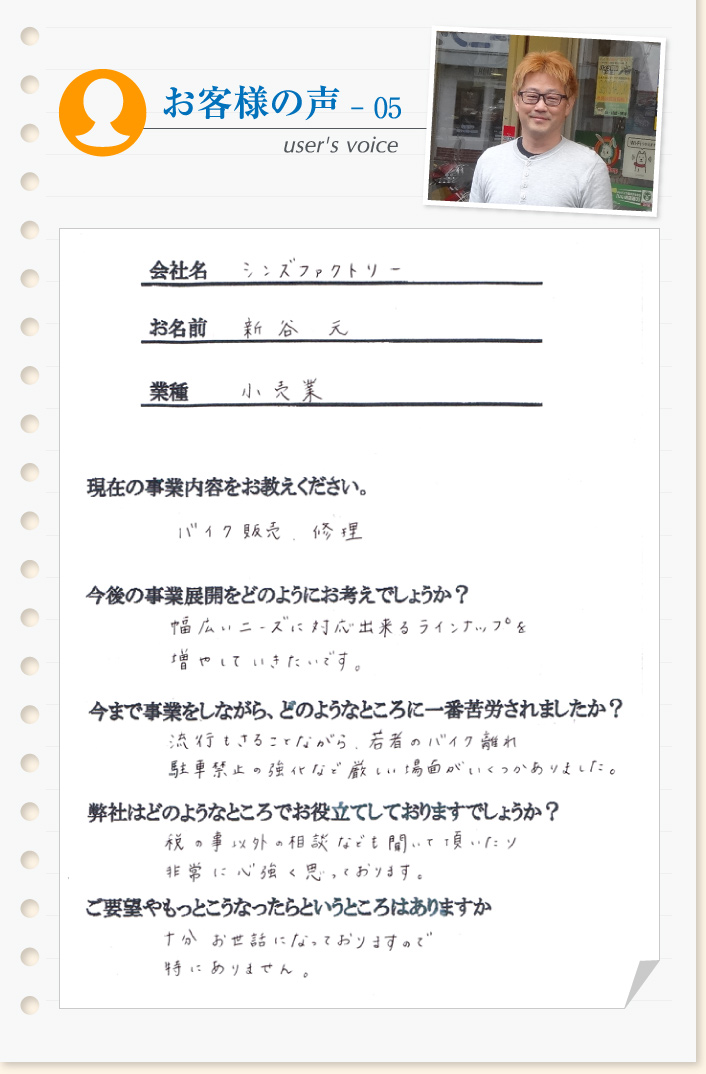 お客様の声 - 05
user's voice
会社名 シンズファクトリー
お名前 新谷 元
業種 小売業
現在の事業内容をお教えください。
バイク販売、修理
今後の事業展開をどのようにお考えでしょうか？
幅広いニーズに対応出来るラインナップを
増やしていきたいです。
今まで事業をしながら、どのようなところに一番苦労されましたか？
流行もさることながら、若者のバイク離れ
駐車禁止の強化など厳しい場面がいくつかありました。
弊社はどのようなところでお役立てしておりますでしょうか？
税の事以外の相談なども聞いて頂いたり
非常に心強く思っております。
ご要望やもっとこうなったらというところはありますか
十分お世話になっておりますので
特にありません。